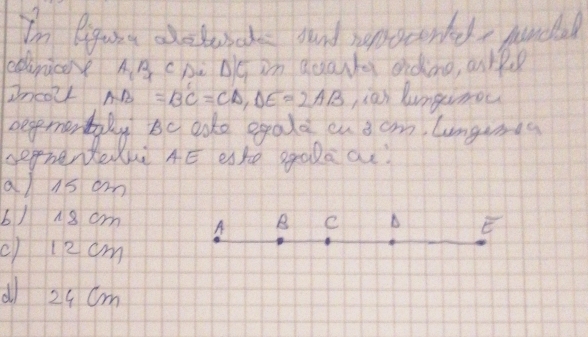 În figura alăturată sunt reprezentate punctele
coliniare A, B, C și D, E, în această ordine, astfel
încât AB = BC = CD, DE = 2AB, iar lungimea
segmentului BC este egală cu 3 cm. Lungimea
segmentului AE este egală cu:
a) 15 cm
b) 18 cm
c) 12 cm
d) 24 cm
A B C D E